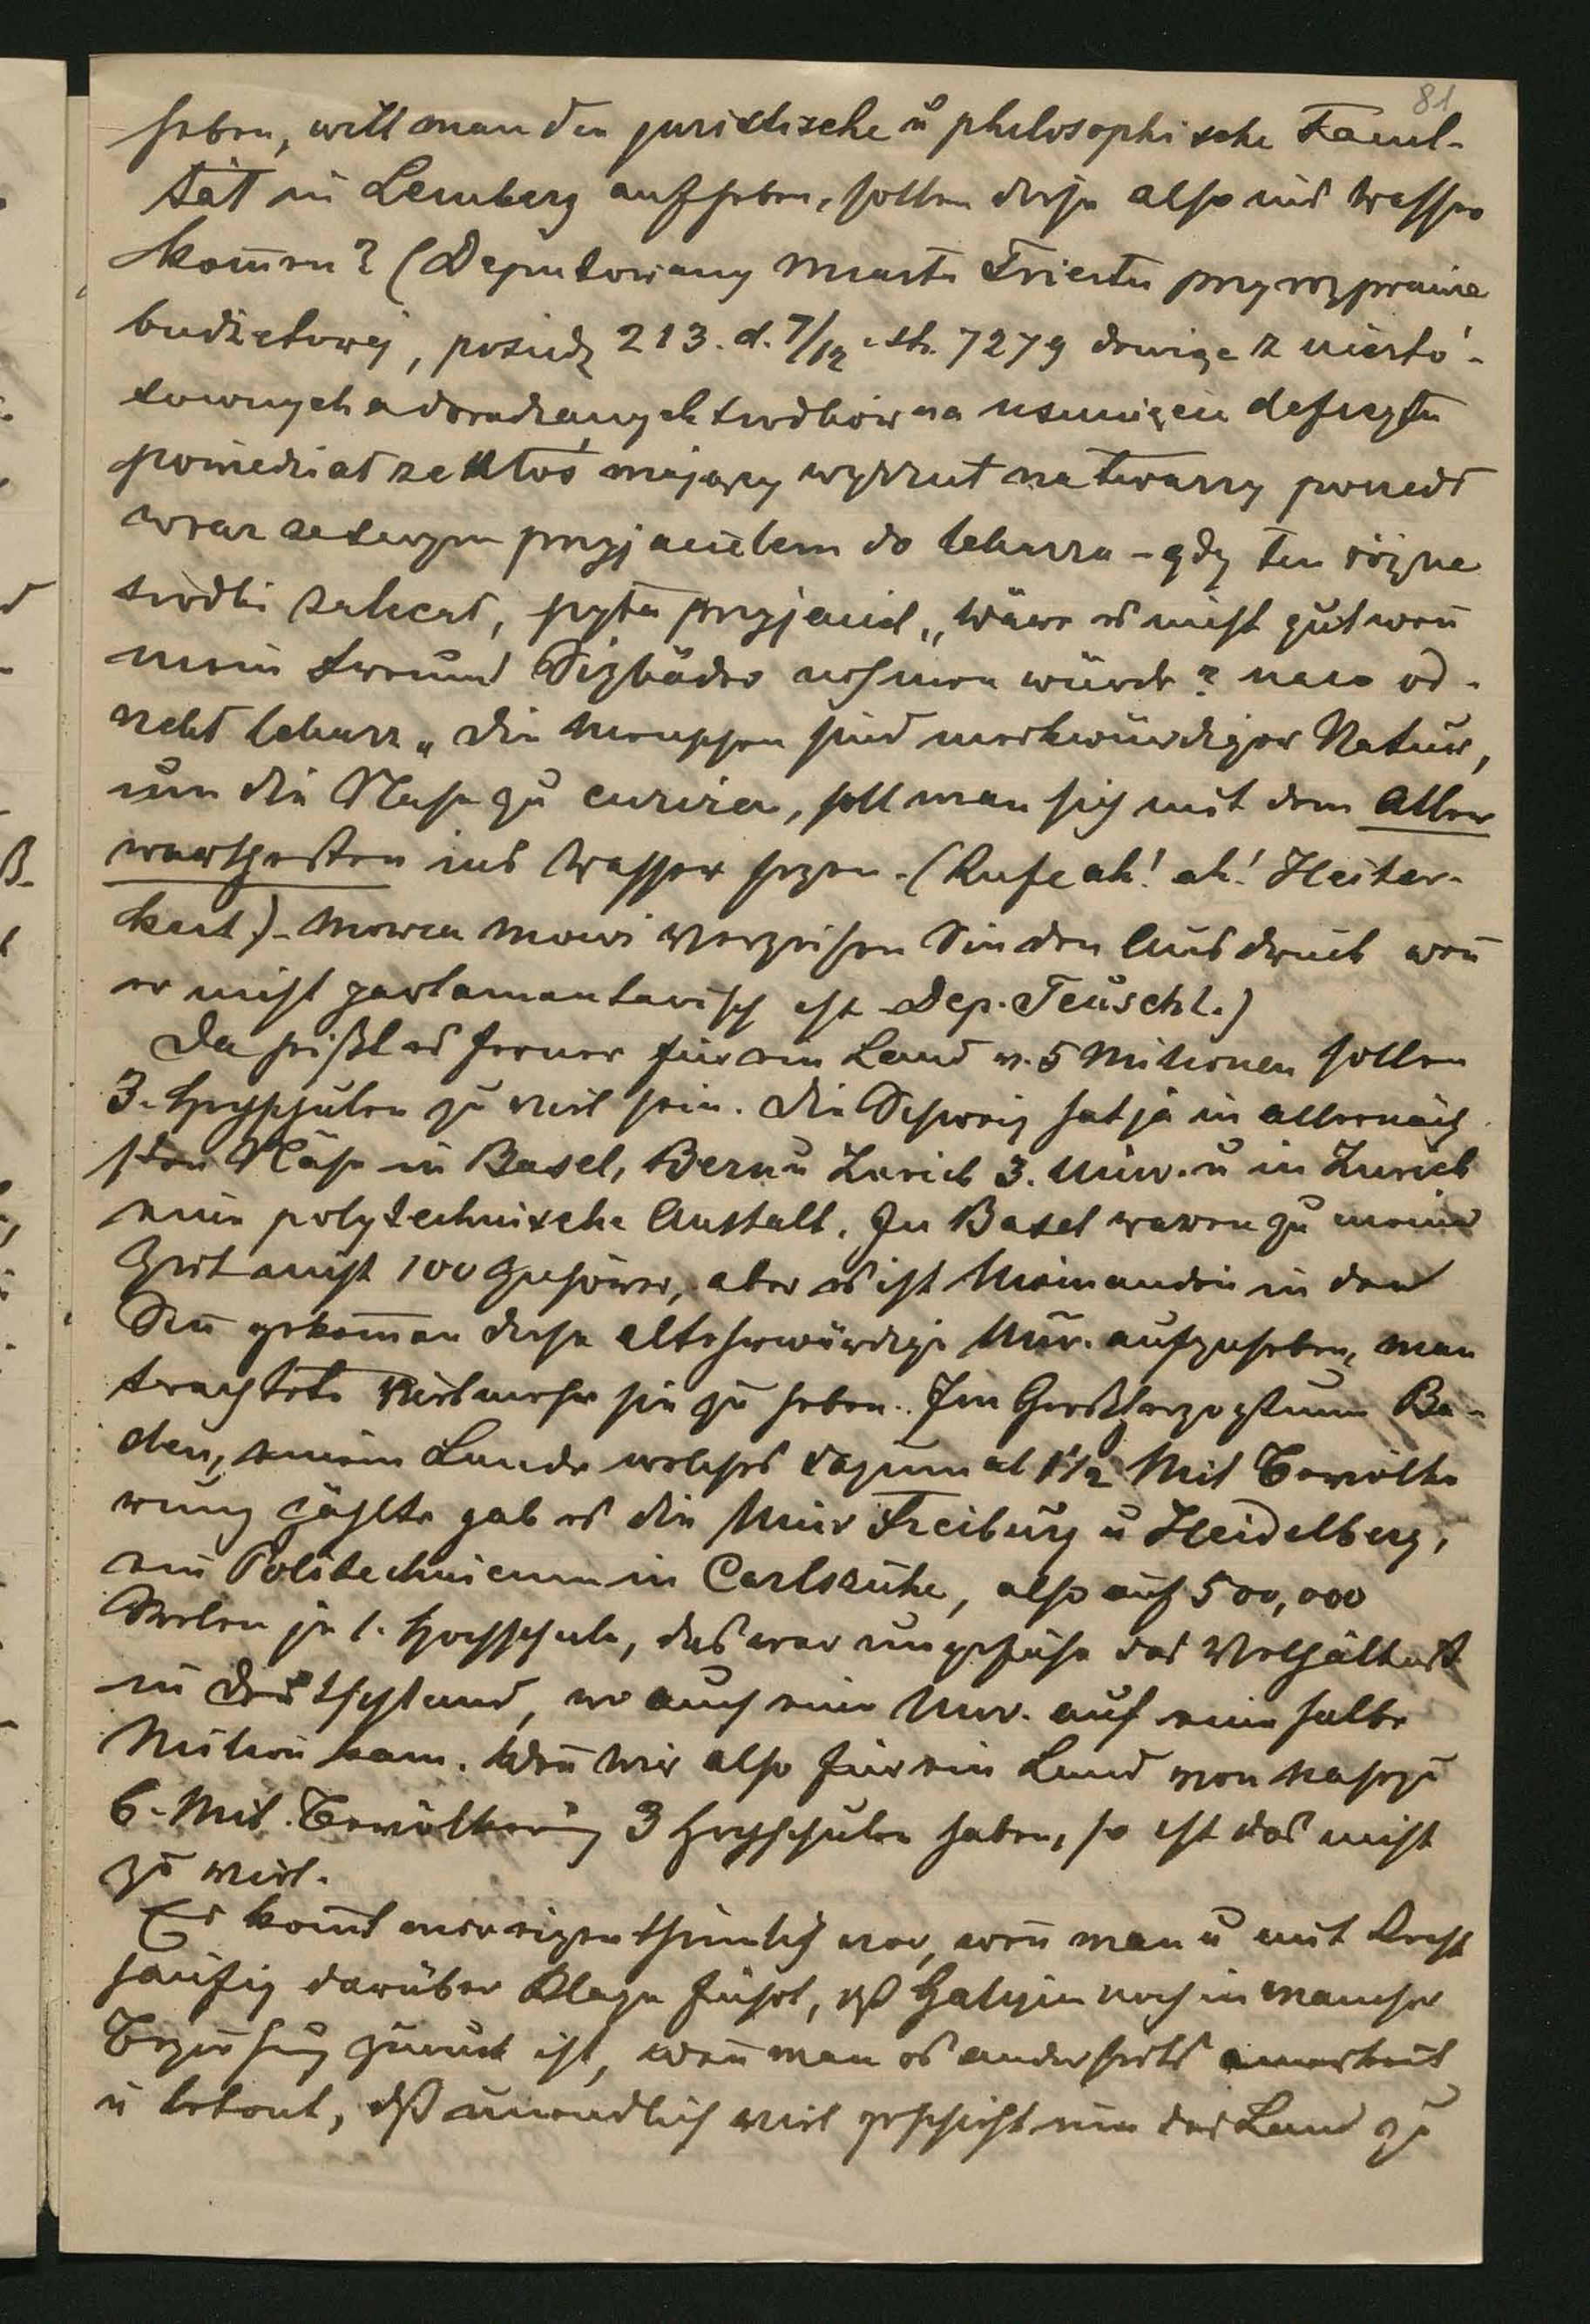 81
heben, will man die juristische u philosophische Facul-
tät in Lemberg aufheben, sollen diese also ins Wasser
kommen? (Deputowany miasta Triestu przy rozprawie
budżetowej, posiedz 213. d. 7/12 str. 7279 drwiąc z niesto-
sownych a doradzanych środków na usunięcie deficytu
powiedział że ktoś mający wyrzut na twarzy poszedł
wraz ze swym przyjacielem do lekarza – gdy ten różne
środki zalecał, pyta przyjaciel „wäre es nicht gut wen̄
mein Freund Sizbäder nehmen würde? na co od-
rzekł lekarz „die Menschen sind merkwürdiger Natur,
um die Nase zu curiren, soll man sich mit dem Aller
werthesten ins Wasser sezen. (Rufe ah! ah! Heiter-
keit). Mowca mowi verzeihen Sie den Ausdruck wen̄
er nicht parlamentarisch ist Dep. Teuschl.)
Da heißt es ferner für ein Land v. 5 Milionen sollen
3. Hochschulen zu viel sein. Die Schweiz hat ja in allernäch
sten Nähe in Basel, Bern u Zürich 3. Univ. u in Zürich
eine polytechnische Anstalt. In Basel waren zu meiner
Zeit nicht 100 Zuhörer, aber es ist Niemanden in den
Sin̄ gekom̄en diese altehrwürdige Univ. aufzuheben, man
trachtete vielmehr sie zu heben. Im Großherzogthum Ba-
den, einem Lande welches dazumal 1 1/2 Mil Bevölke
rung zählte gab es die Univ Freiburg u Heidelberg,
ein Politechnicum in Carlsruhe, also auf 500,000
Seelen je 1. Hochschule, das war ungefähr das Verhältniß
in Deutschland, wo auch eine Univ. auf eine halbe
Milion kam. Wen̄ wir also für ein Land von nahezu
6. Mil. Bevölkerung 3 Hochschulen haben, so ist das nicht
zu viel.
Es kom̄t mir eigenthümlich vor, wen̄ man u mit Recht
häufig darüber Klage führt, dß Galizien noch in mancher
Beziehung zurück ist, wen̄ man es anderseits anerkent
u betont, dß unendlich viel geschieht um das Land zu